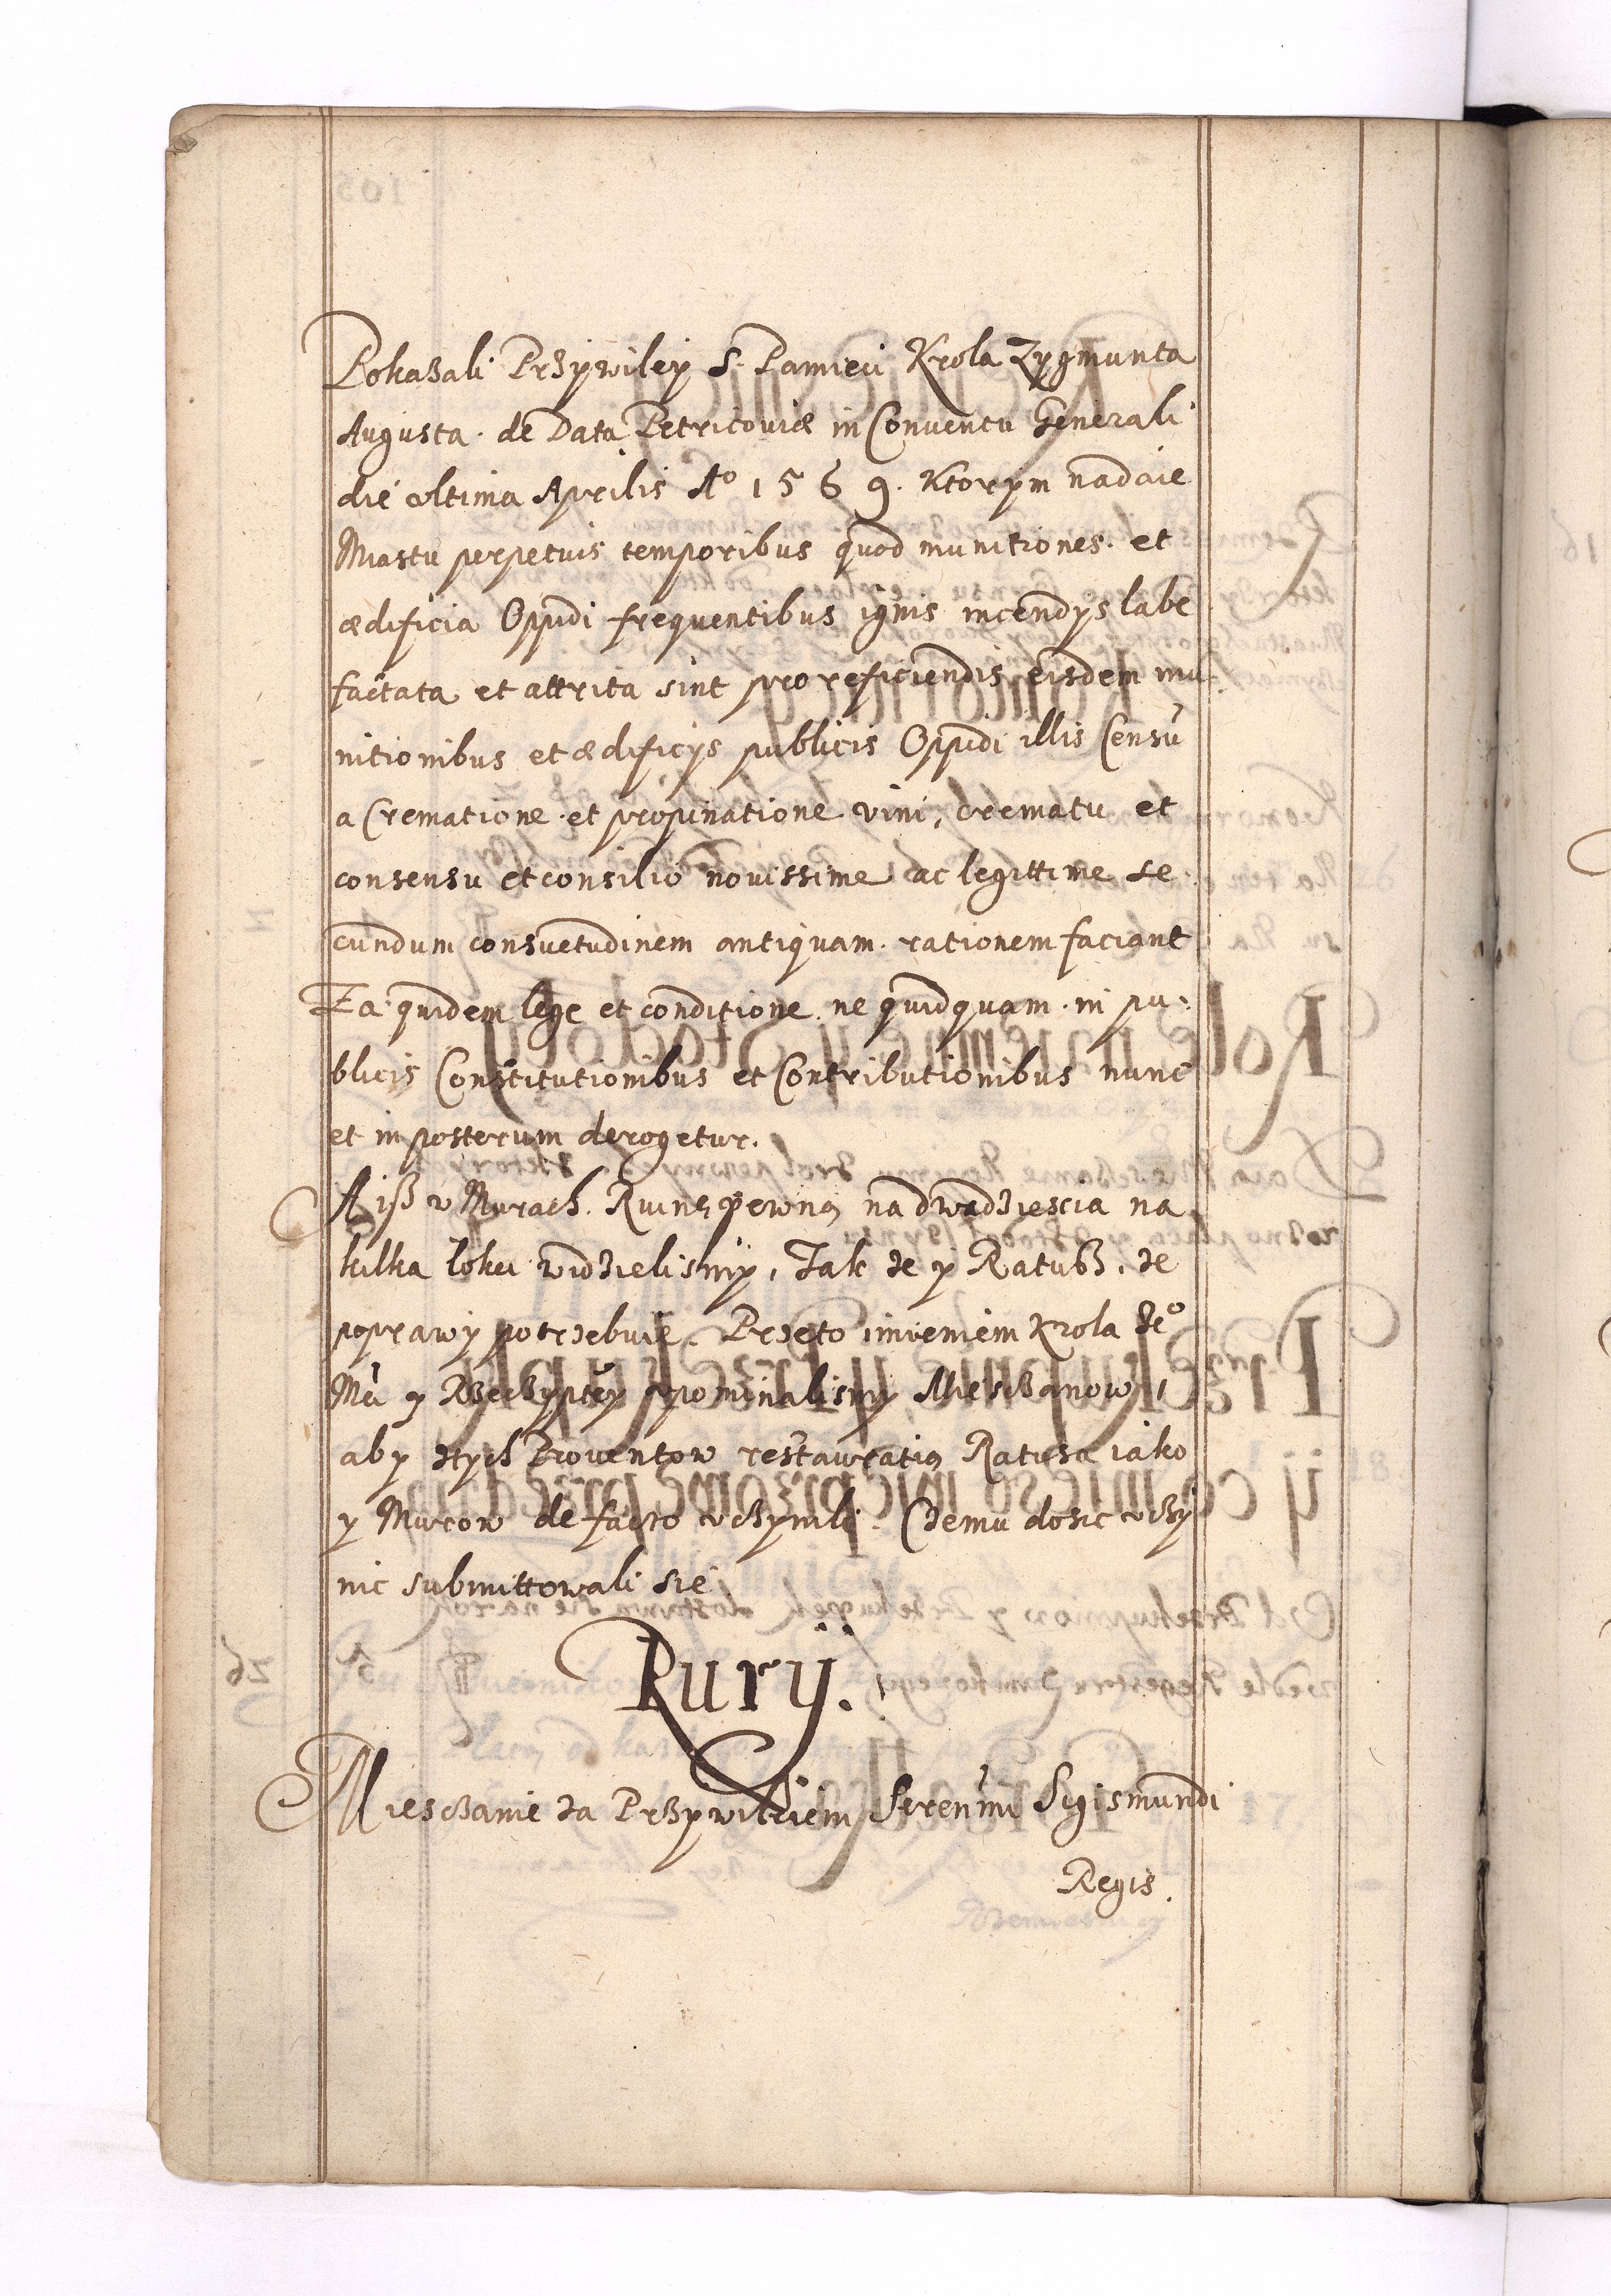 Pokazali Przywiley S. Pamieci Krola Zygmunta
Augusta. de Data Petricoviæ in Conventu Generali
die ultima Aprilis Ao 1569. Ktorym nadaie
Miastu perpetuis temporibus quod munitiones. et
ædificia Oppidi frequentibus ignis incendys labe
factata et attrita sint pro reficiendis eisdem mu
nitionibus et ædificys publicis Oppidi illis Censu
a Crematione et propinatione vini, crematu et
consensu et consilio novissime ac legittime se
cundum consvetudinem antiquam. rationem faciant
Ea quidem lege et conditione ne quidquam. in pu:
blicis Constitutionibus et Contributionibus nunc
et in posterum derogetur.
A isz v Murach. Ruinę pewną na dwadziescia na
kilka lokci widzielismy, Tak ze y Ratusz, ze
poprawy potrzebuie. Przeto imieniem Krola Jeo
Mci y Rzeczyptey vpominalismy Miesczanow,
aby ztych Proventow restauratią Ratusza iako
y Murow de facto vczynili. Czemu dosic vczy
nic submittowali się
Rury.
Miesczanie za Przywileiem Serenmi Sigismundi
Regis.